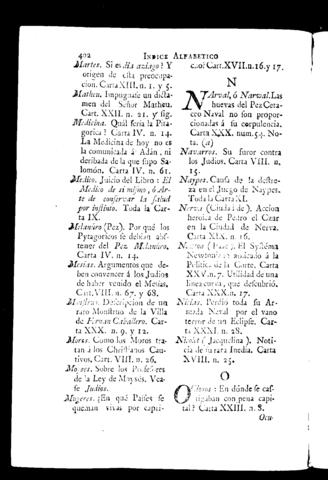 402 INDICE ALFABETICO
Martes. Si es dia aziago? Y
origen de esta preocupa-
cion. Carta XIII. n. 1. y 5.
Matheu. Impugnase un dicta-
men del Señor Matheu.
Cart. XXII. n. 21. y sig.
Medicina. Quál sería la Pita-
gorica? Carta IV. n. 14.
La Medicina de hoy no es
la comunicada á Adán, ni
deribada de la que supo Sa-
lomón. Carta IV. n. 61.
Medico. Juicio del Libro: El
Medico de sí mismo, ó Ar-
te de conservar la salud
por instinto. Toda la Car-
ta IX.
Melanuro (Pez). Por qué los
Pytagoricos se debian abs-
tener del Pez Melanuro.
Carta IV. n. 14.
Mesias. Argumentos que de-
ben convencer á los Judios
de haber venido el Mesías.
Cart. VIII. n. 67. y 68.
Monstruo. Descripcion de un
raro Monstruo de la Villa
de Fernan Caballero. Car-
ta XXX. n. 9. y 12.
Moros. Como los Moros tra-
tan á los Christianos Cau-
tivos, Cart. VIII. n. 26.
Moyses. Sobre los Profesores
de la Ley de Moysés. Vea-
se Judios.
Mugeres. ¿En qué Países se
queman vivas por capri-
cho? Cart. XVII. n. 16. y 17.
N
Narval, ó Narwal. Las
huevas del Pez Ceta-
ceo Naval no son propor-
cionadas á su corpulencia.
Carta XXX. num. 54. No-
ta. (a)
Navarros. Su furor contra
los Judios. Carta VIII. n.
15.
Naypes. Causa de la destre-
za en el Juego de Naypes.
Toda la Carta XI.
(Ciudad de). Accion
heroica de Pedro el Czar
en la Ciudad de Nerva.
Carta XIX. n. 16.
El Systéma
Newtoniano aplicado á la
Politica de la Corte. Carta
XXV. n. 7. Utilidad de una
linea curva, que descubrió.
Carta XXX. n. 17.
Nicias. Perdió toda su Ar-
mada Naval por el vano
terror de un Eclipse. Car-
ta XXXI. n. 28.
(Jacquelina). Noti-
cia de su rara Inedia. Carta
XVIII. n. 25.
O
: En dónde se cas-
tigaban con pena capi-
tal? Carta XXIII. n. 8.
Ocu-